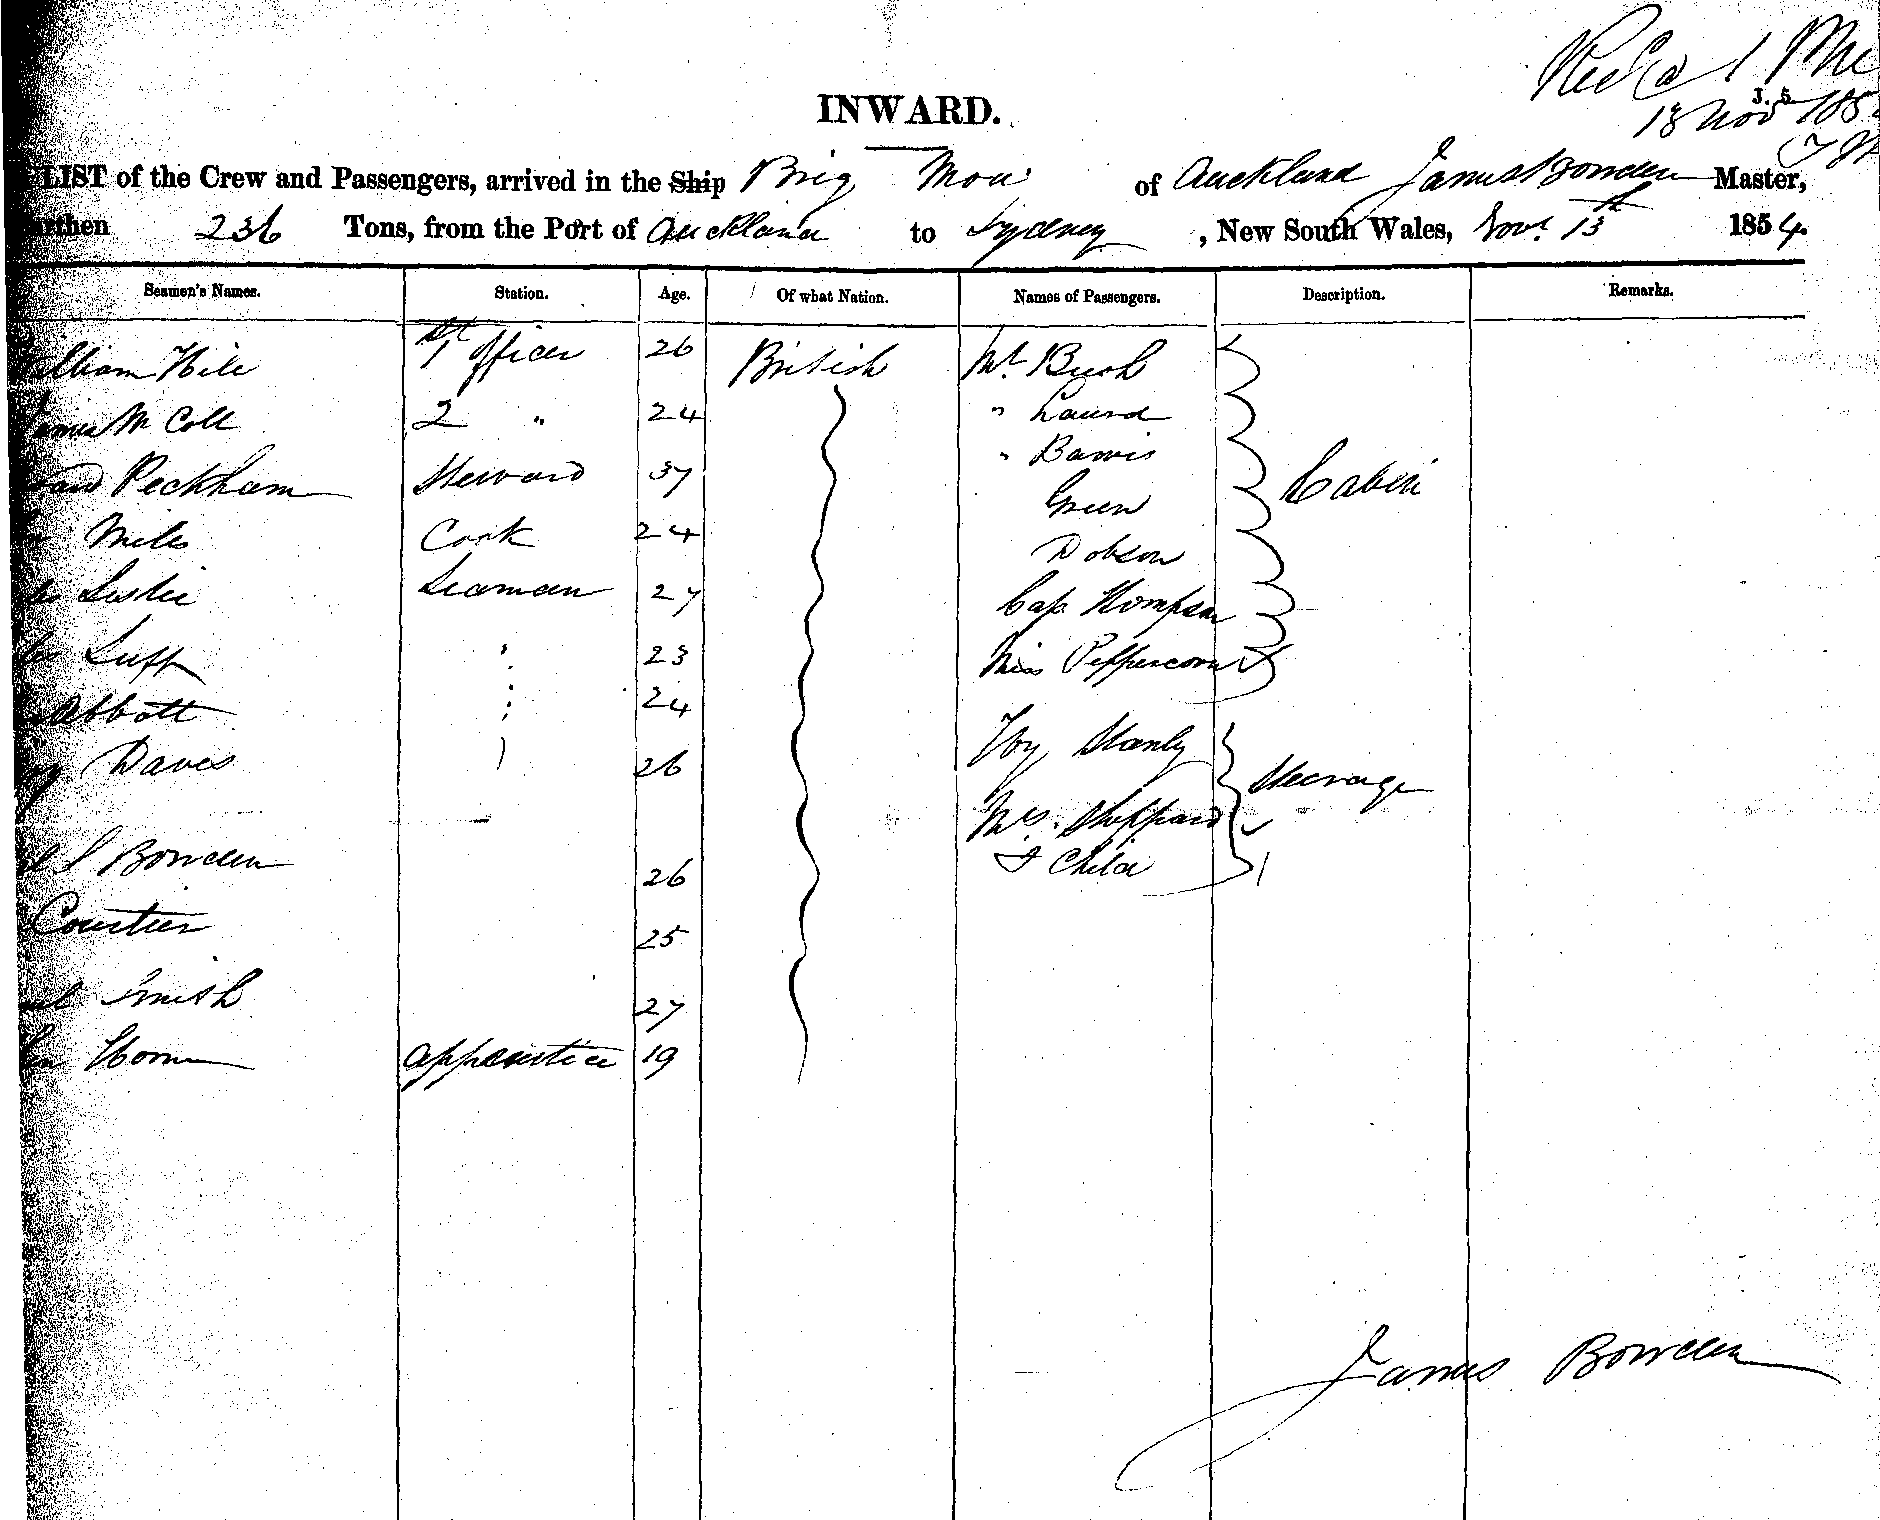 INWARD.
13 Nov 185
LIST of the Crew and Passengers, arrived in the Ship Brig Moa of Auckland James Bowden Master,
236 Tons, from the Port of Auckland to Sydney, New South Wales, Novr. 13th 1854.
Seamen's Names. Station. Age. Of what Nation. Names of Passengers. Description. Remarks.
1st Officer 26 British Mr. Bush
McColl 2 " 24 "
Peckham Steward 37 "
Cook 24 Green Cabin
Leslie Seaman 27 Dobson
Luff " 23 Cap. Thompson
Abbott " 24 Miss Peppercorn
Daves " 26 Stanly Steerage
S Bowden 26 Mrs. Sheppard
Courtier 25 & Child
Smith 27
apprentice 19
James Bowden